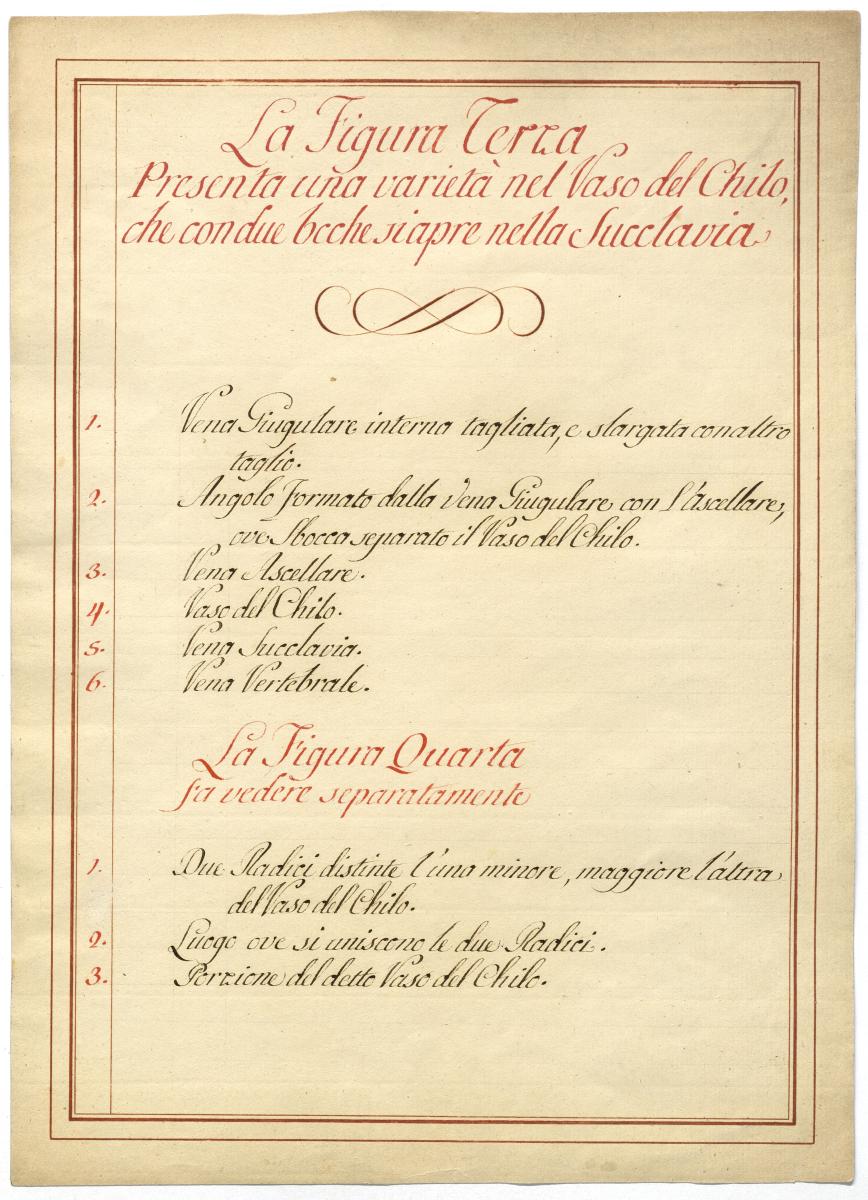 La Figura Terza
Presenta una varietà nel Vaso del Chilo,
che con due bcche si apre nella Succlavia
1. Vena Giugulare interna tagliata, e slargata con altro
taglio.
2. Angolo formato dalla Vena Giugulare con l'Ascellare,
ove Sbocca separato il Vaso del Chilo.
3. Vena Ascellare.
4. Vaso del Chilo.
5. Vena Succlavia.
6. Vena Vertebrale.
La Figura Quarta
fa vedere separatamente
1. Due Radici distinte l'una minore, maggiore l'altra
del Vaso del Chilo.
2. Luogo ove si uniscono le due Radici.
3. Porzione del detto Vaso del Chilo.